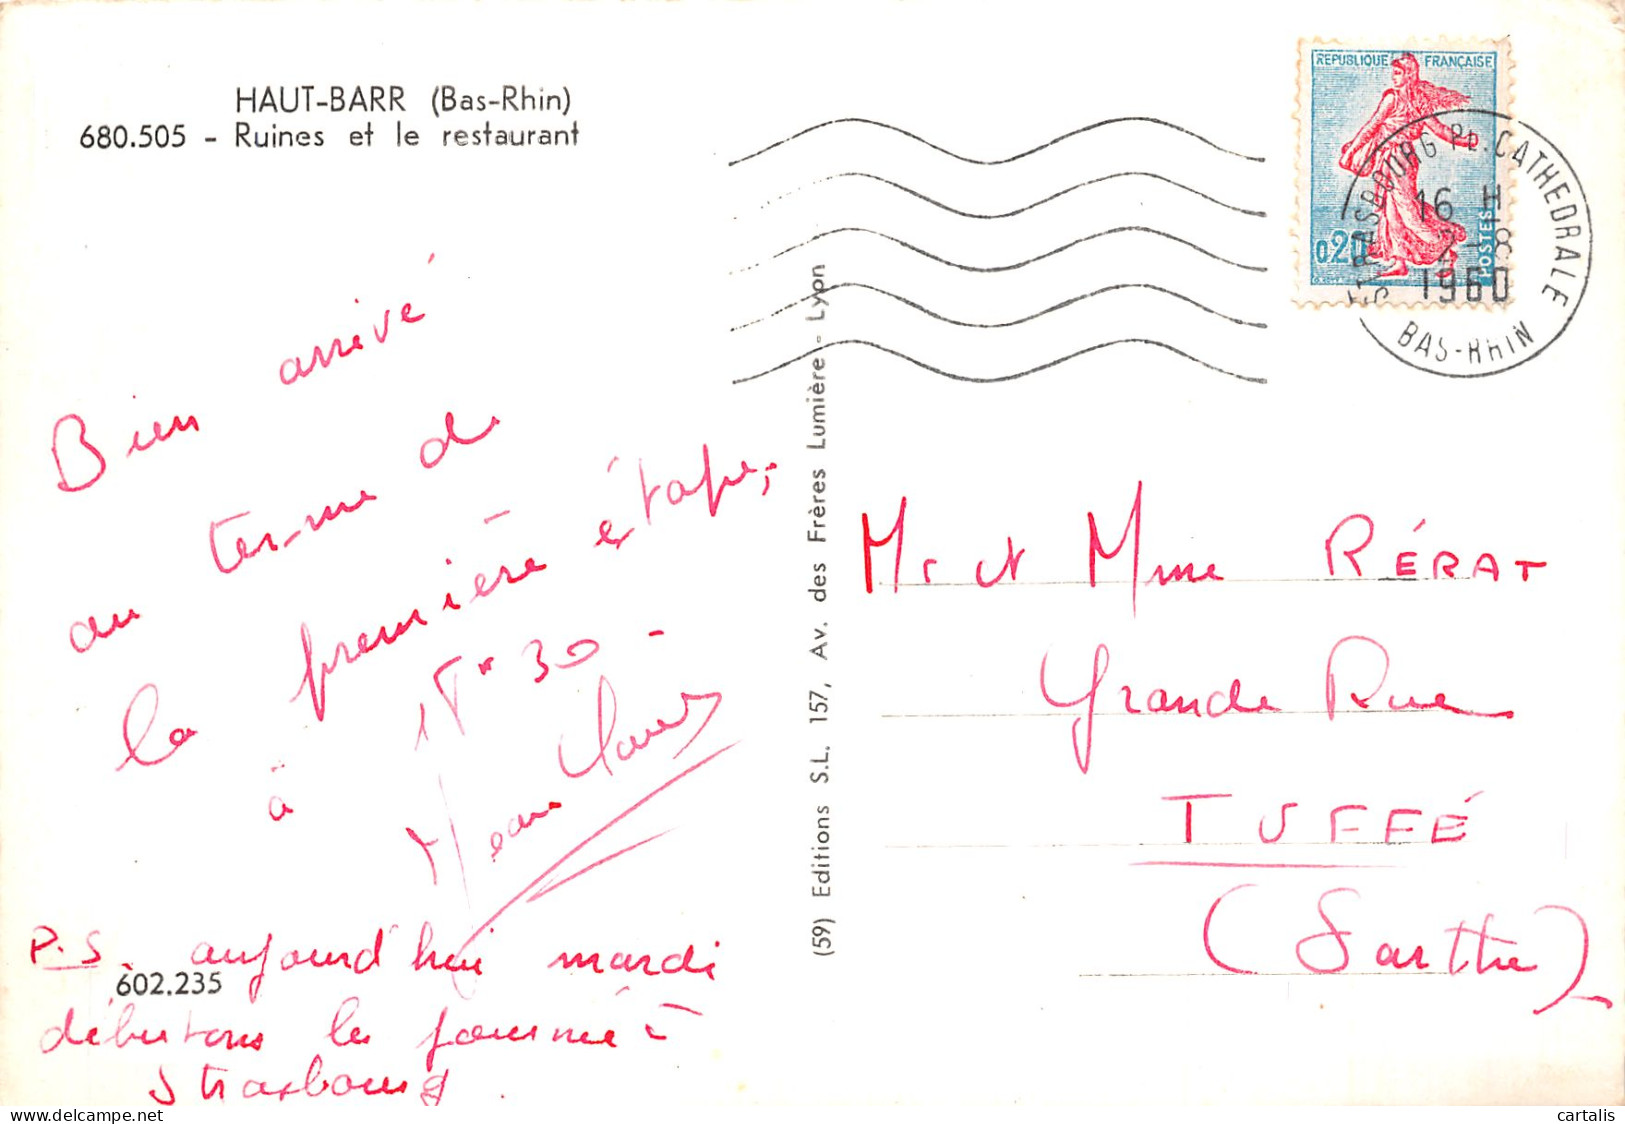 HAUT-BARR (Bas-Rhin)
680.505 - Ruines et le restaurant
REPUBLIQUE FRANÇAISE
0.20
POSTES
STRASBOURG PL. CATHEDRALE
16 H
2-8
1960
BAS-RHIN
Bien arrivé
au terme de
la première étape,
à 18h 30 -
Jean Claude
P.S. aujourd'hui mardi
débutons la journée à
Strasbourg
602.235
(59) Editions S.L. 157, Av. des Frères Lumière - Lyon
Mr et Mme RÉRAT
Grande Rue
TUFFÉ
(Sarthe)
delcampe.net
cartalis